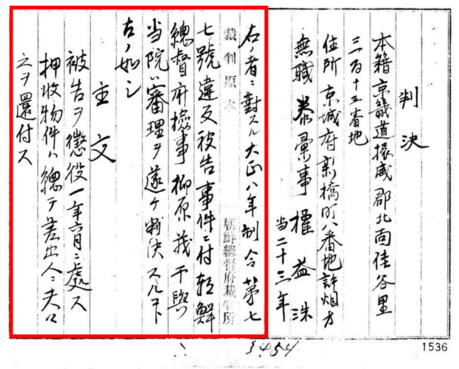 判決
本籍京畿道振威郡北面佳谷里
三百十三番地
住所京城府新橋町八番地許烟方
無職泰彙事權益洙
当二十三年
右ノ者ニ對スル大正八年制令第七
裁判原本
朝鮮總督府裁判所
七號違反被告事件ニ付朝鮮
總督府檢事柳原茂干與
当院ハ審理ヲ遂ケ判決スルコト
左ノ如シ
主文
被告ヲ懲役一年六月ニ處ス
押收物件ハ總テ差出人ニ夫々
之ヲ還付ス
1536